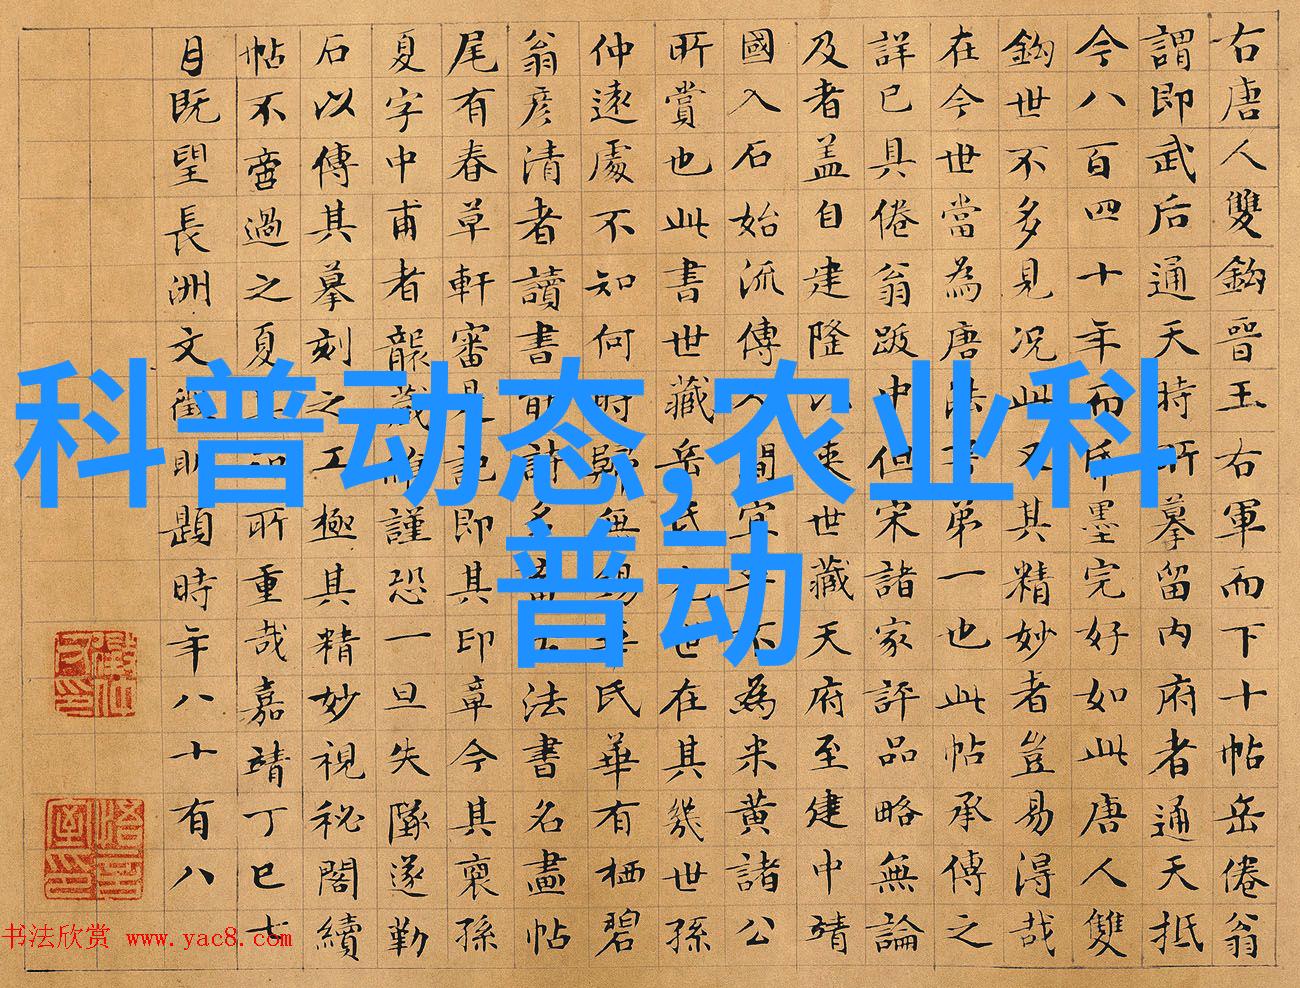 科普动态,农业科
普动
右唐人雙鈎晉王右軍而下十帖岳倦翁
謂即武后通天時所摹留内府者通天抵
今八百四十年而墨完好如此唐人雙
鈎世不多見况此又其精妙者豈易得哉
在今世當為唐弟一也此帖承傳之
詳已具倦翁跋中但宋諸家評品略無論
及者盖自建隆以來世藏天府至建中靖
國入石始流傳人間宜其不為米黄諸公
所賞也此書世藏岳氏元世在其幾世孫
仲遠處不知何時歸無錫華氏華有栖碧
翁彦清者讀書能詩多蓄古法書名畫帖
尾有春草軒審定記即其印章今其裔孫
夏字中甫者襲藏惟謹恐一旦失墜遂勒
石以傳其摹刻之工極其精妙視秘閣續
帖不啻過之夏知所重哉嘉靖丁巳七
月既望長洲文徵明題時年八十有八
书法欣赏 www.yac8.com